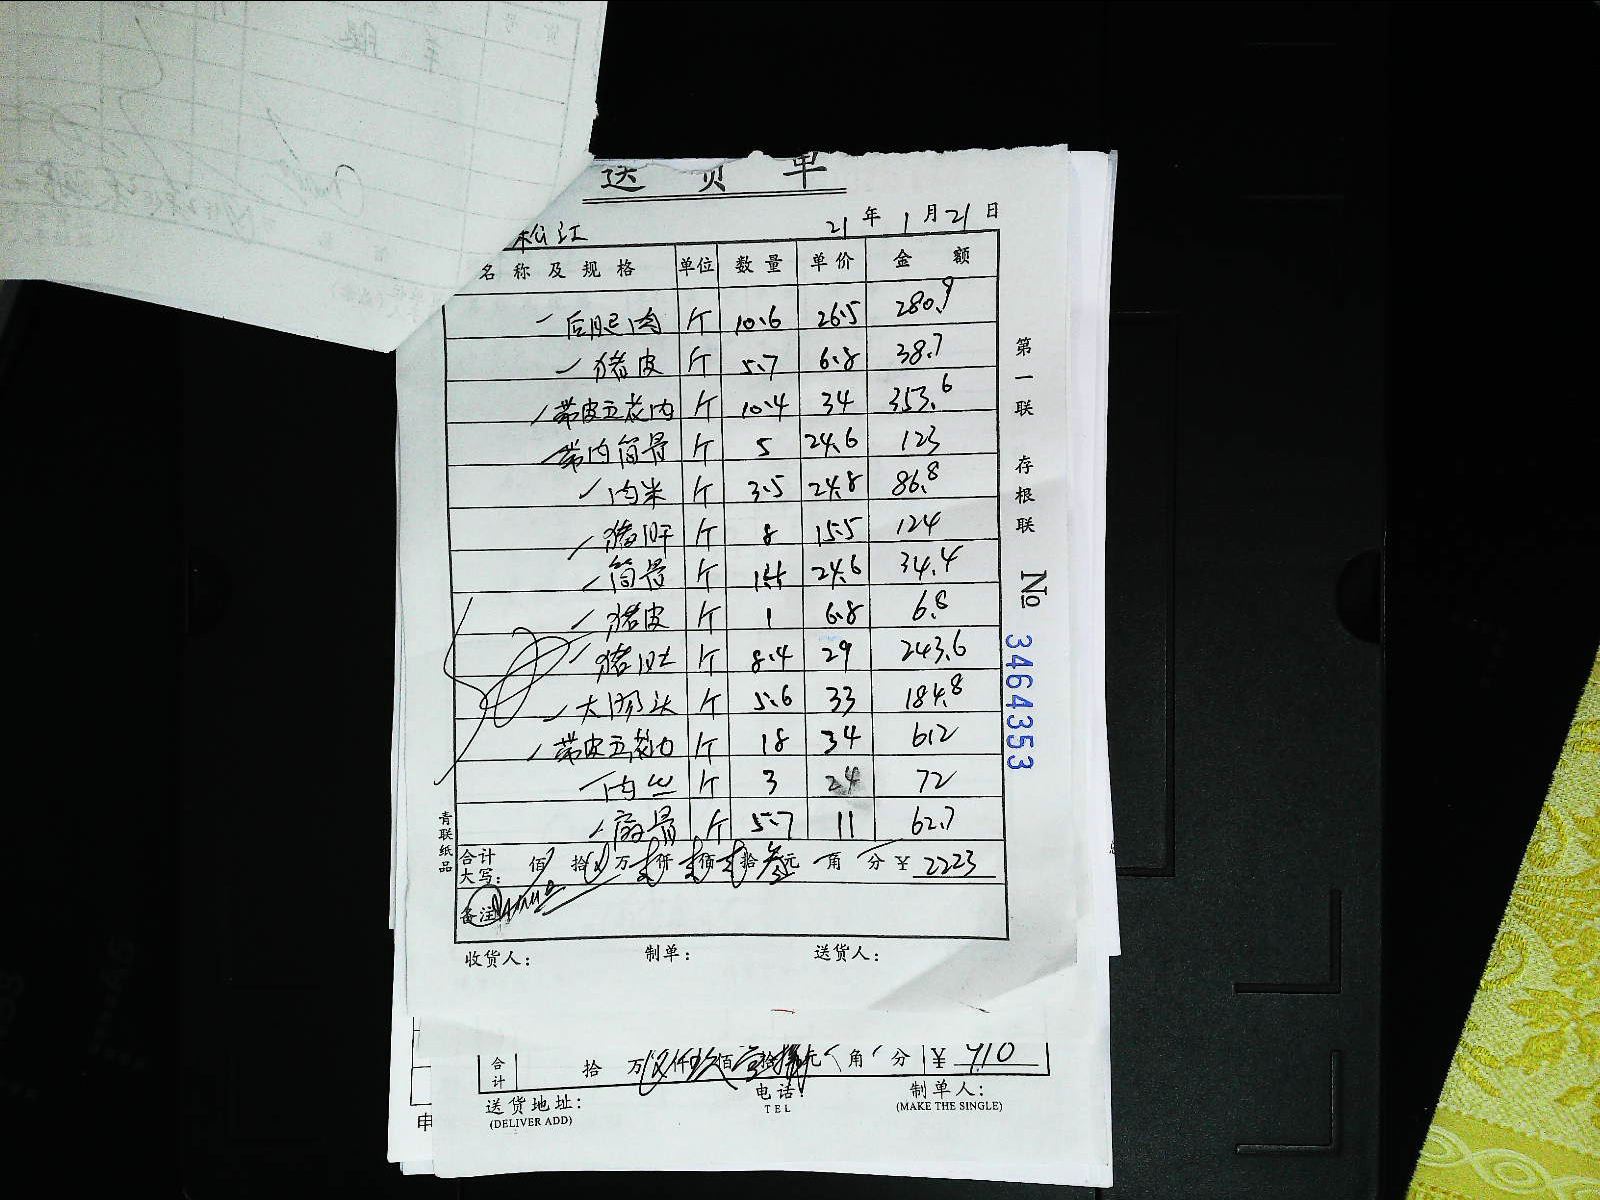 送货单
松江 21年1月21日
名称及规格 单位 数量 单价 金额
后腿肉 斤 10.6 26.5 280.9
猪皮 斤 5.7 6.8 38.7
带皮五花肉 斤 10.4 34 353.6
带肉筒骨 斤 5 24.6 123
肉米 斤 3.5 24.8 86.8
猪肝 斤 8 15.5 124
筒骨 斤 1.4 24.6 34.4
猪皮 斤 1 6.8 6.8
猪肚 斤 8.4 29 243.6
大肠头 斤 5.6 33 184.8
带皮五花肉 斤 18 34 612
肉丝 斤 3 24 72
扇骨 斤 5.7 11 62.7
合计大写: 佰 拾 万 仟 佰 拾 叁元 角 分 ¥ 2223
备注
收货人: 制单: 送货人:
第一联 存根联
No 3464353
青联纸品
合计 拾 万 仟 佰 拾 元 角 分 ¥
送货地址: 电话: 制单人:
(DELIVER ADD) TEL (MAKE THE SINGLE)
申